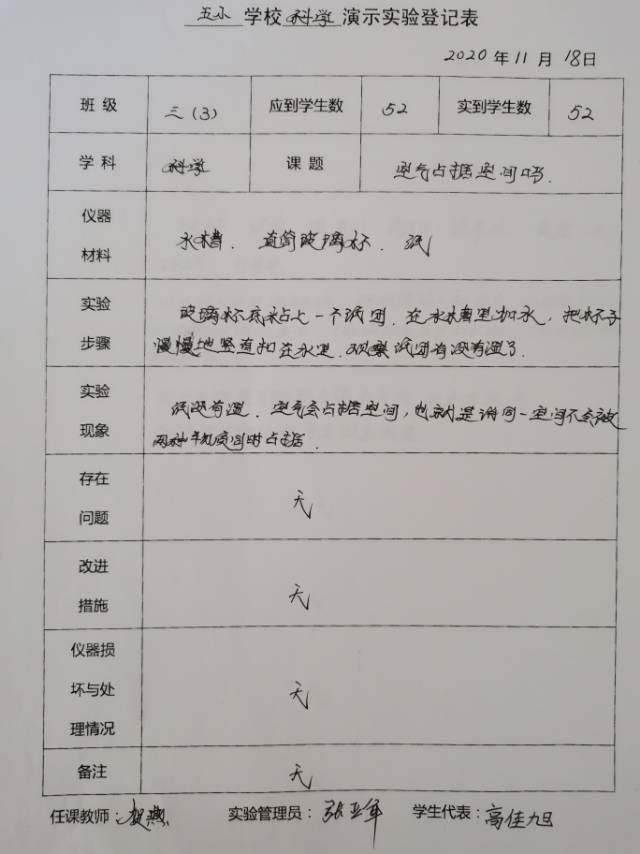 五小 学校 科学 演示实验登记表
2020 年 11 月 18 日
班 级 三（3） 应到学生数 52 实到学生数 52
学 科 科学 课 题 空气占据空间吗.
仪器
材料
水槽. 直筒玻璃杯. 纸
实验
步骤
玻璃杯底粘上一个纸团. 在水槽里加水，把杯子
慢慢地竖直扣在水里. 观察纸团有没有湿了.
实验
现象
纸没有湿. 空气会占据空间，也就是说同一空间不会被
两种物质同时占据.
存在
问题
无
改进
措施
无
仪器损
坏与处
理情况
无
备注 无
任课教师：贺燕 实验管理员：张亚军 学生代表：高佳旭